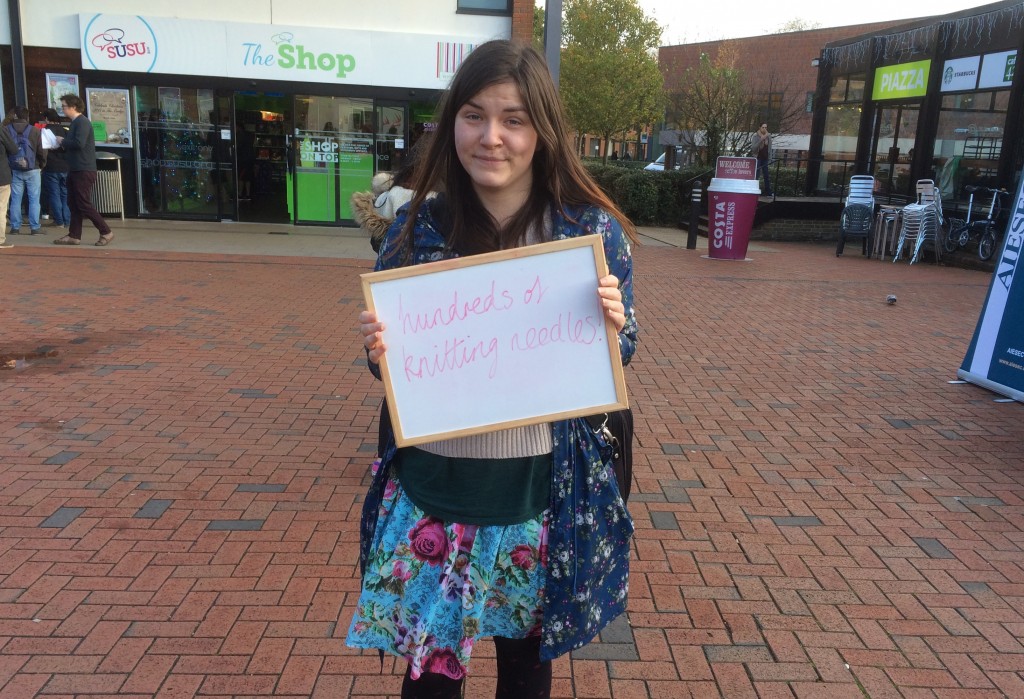 SUSU
The Shop
SHOP
ON TOP
hundreds of
knitting needles!
WELCOME
COSTA
EXPRESS
PIAZZA
STARBUCKS
AIESEC